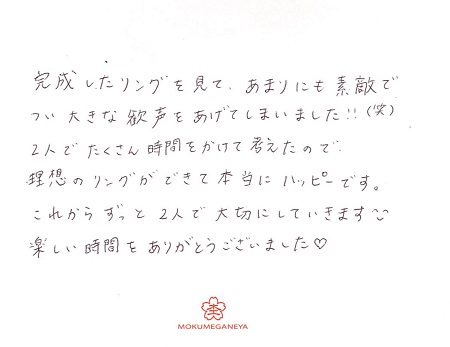 完成したリングを見て、あまりにも素敵で
つい大きな歓声をあげてしまいました!!(笑)
2人でたくさん時間をかけて考えたので、
理想のリングができて本当にハッピーです。
これからずっと2人で大切にしていきます
楽しい時間をありがとうございました♡
MOKUMEGANEYA